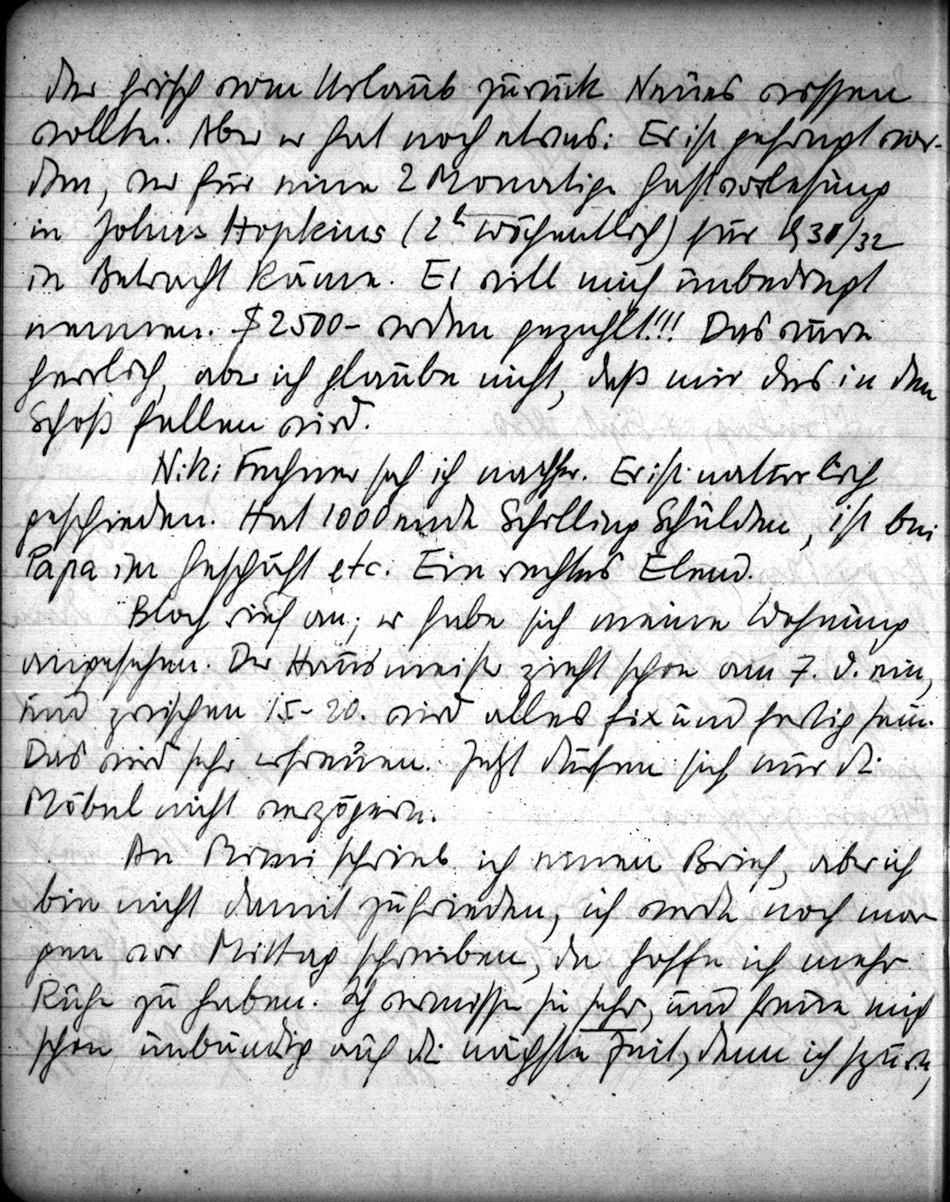 der frisch vom Urlaub zurück Neues wissen
wollte. Aber er hat noch etwas: Er ist gefragt wor-
den, wer für eine 2 Monatige Gastvorlesung
in Johns Hopkins (2h wöchentlich) für 31/32
in Betracht käme. Er will mich unbedingt
nennen. $ 2500– werden gezahlt!!! Das wäre
herrlich, aber ich glaube nicht, daß mir das in den
Schoß fallen wird.
Niki sah ich nachher. Er ist natürlich
geschieden. Hat 1000ende Schilling Schulden, ist bei
Papa im Geschäft etc. Ein rechtes Elend.
Bloch rief an; er habe sich meine Wohnung
angesehen. Der Hausmeister zieht schon am 7. d. ein,
und zwischen 15–20. wird alles fix und fertig sein.
Das wird sehr erfreuen. Jetzt dürfen sich nur die
Möbel nicht verzögern.
An schrieb ich einen Brief, aber ich
bin nicht damit zufrieden, ich werde noch mor
gen vor Mittag schreiben, da hoffe ich mehr
Ruhe zu haben. Ich vermisse sie sehr, und freue mich
schon unbändig auf die nächste Zeit, denn ich spüre,